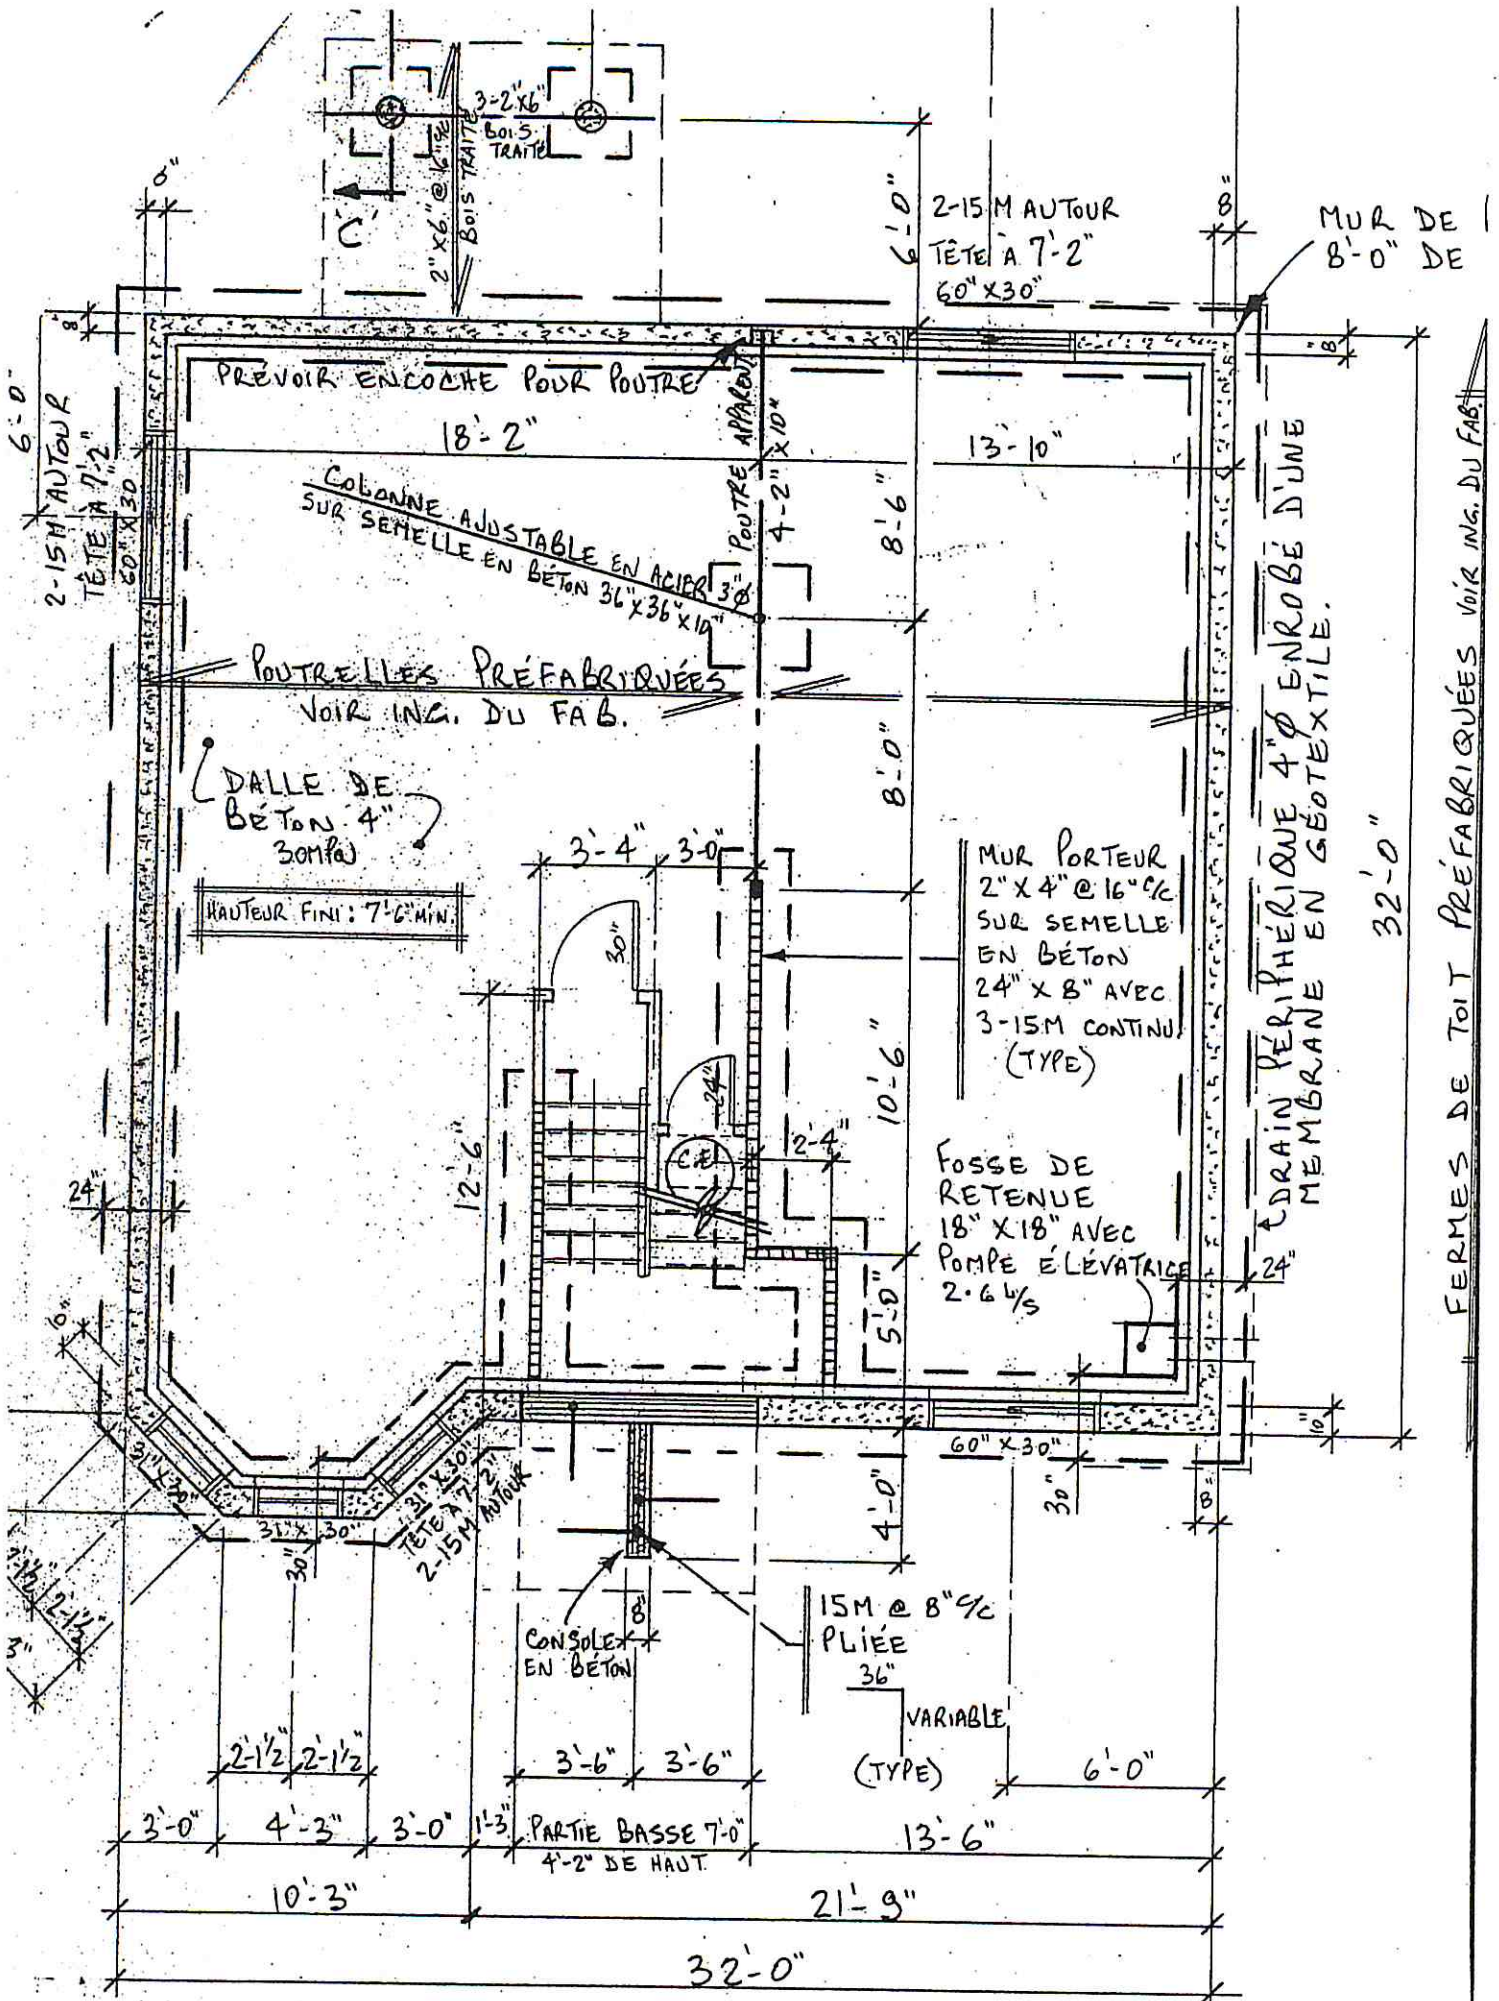 3-2"X6"
BOIS
TRAITÉ
2" X6" @ 16" %
BOIS TRAITÉ
'C'
6'-0"
8"
2-15 M AUTOUR
TÊTE À 7'-2"
60" X 30"
8"
MUR DE
8'-0" DE
8"
6'-0"
2-15M AUTOUR
TÊTE À 7'-2"
60" X 30
PRÉVOIR ENCOCHE POUR POUTRE
18'-2"
13'-10"
POUTRE APPARENT
4-2" X 10"
COLONNE AJUSTABLE EN ACIER 3"Ø
SUR SEMELLE EN BÉTON 36"X36"X10"
8'-6"
POUTRELLES PRÉFABRIQUÉES
VOIR ING. DU FAB.
8'-0"
DALLE DE
BÉTON 4"
30MPa
HAUTEUR FINI: 7'-6" MIN.
3'-4"
3'-0"
30"
24"
C.E
MUR PORTEUR
2" X 4" @ 16" C/C
SUR SEMELLE
EN BÉTON
24" X 8" AVEC
3-15M CONTINU
(TYPE)
10'-6"
12'-6"
2'-4"
24"
FOSSE DE
RETENUE
18" X 18" AVEC
POMPE ÉLÉVATRICE
2.6 L/S
5'-0"
24"
DRAIN PÉRIPHÉRIQUE 4"Ø ENROBÉ D'UNE
MEMBRANE EN GÉOTEXTILE.
32'-0"
FERMES DE TOIT PRÉFABRIQUÉES VOIR ING. DU FAB.
31" X 30"
31" X 30"
30"
31" X 30"
TÊTE À 7'-2"
2-15M AUTOUR
60" X 30"
30"
10"
8
4'-0"
2'-1½"
3"
8"
CONSOLE
EN BÉTON
15M @ 8" C/C
PLIÉE
36"
VARIABLE
(TYPE)
2'-1½"
2'-1½"
3'-6"
3'-6"
6'-0"
3'-0"
4'-3"
3'-0"
1'-3"
PARTIE BASSE 7'-0"
4'-2" DE HAUT
13'-6"
10'-3"
21'-9"
32'-0"